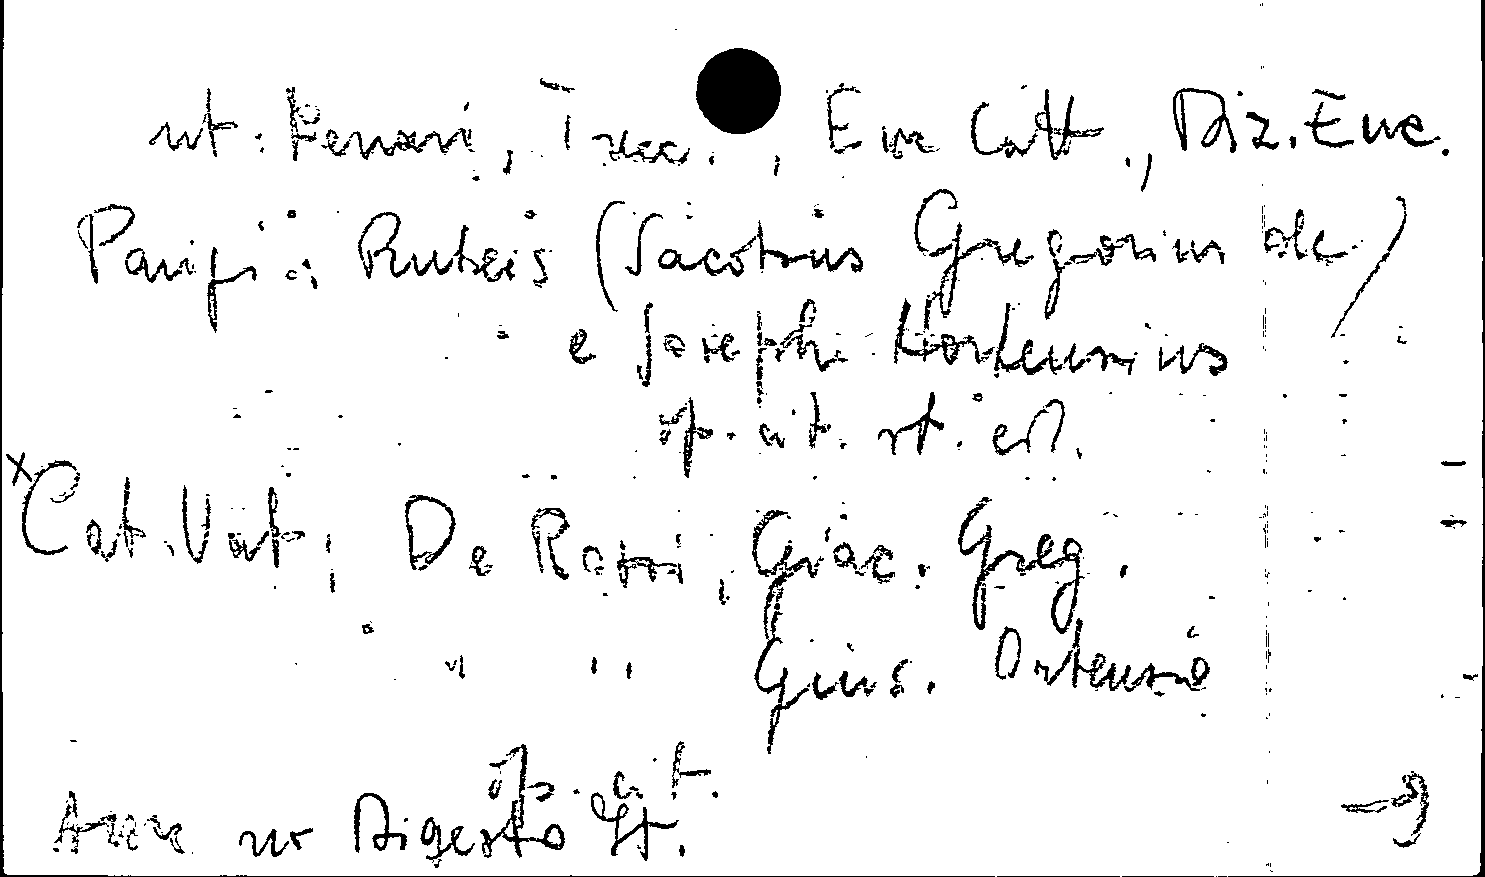 nt: Ferrari, Trecc., Enc Catt., Diz. Enc.
Parigi: Rubeis (Jacobus Gregorius de)
e Joseph Hortensius
op. cit. st. ed.
x Cat. Vat; De Rossi, Giac. Greg.
" " Gius. Ortensio
op. cit.
no Digesto It.